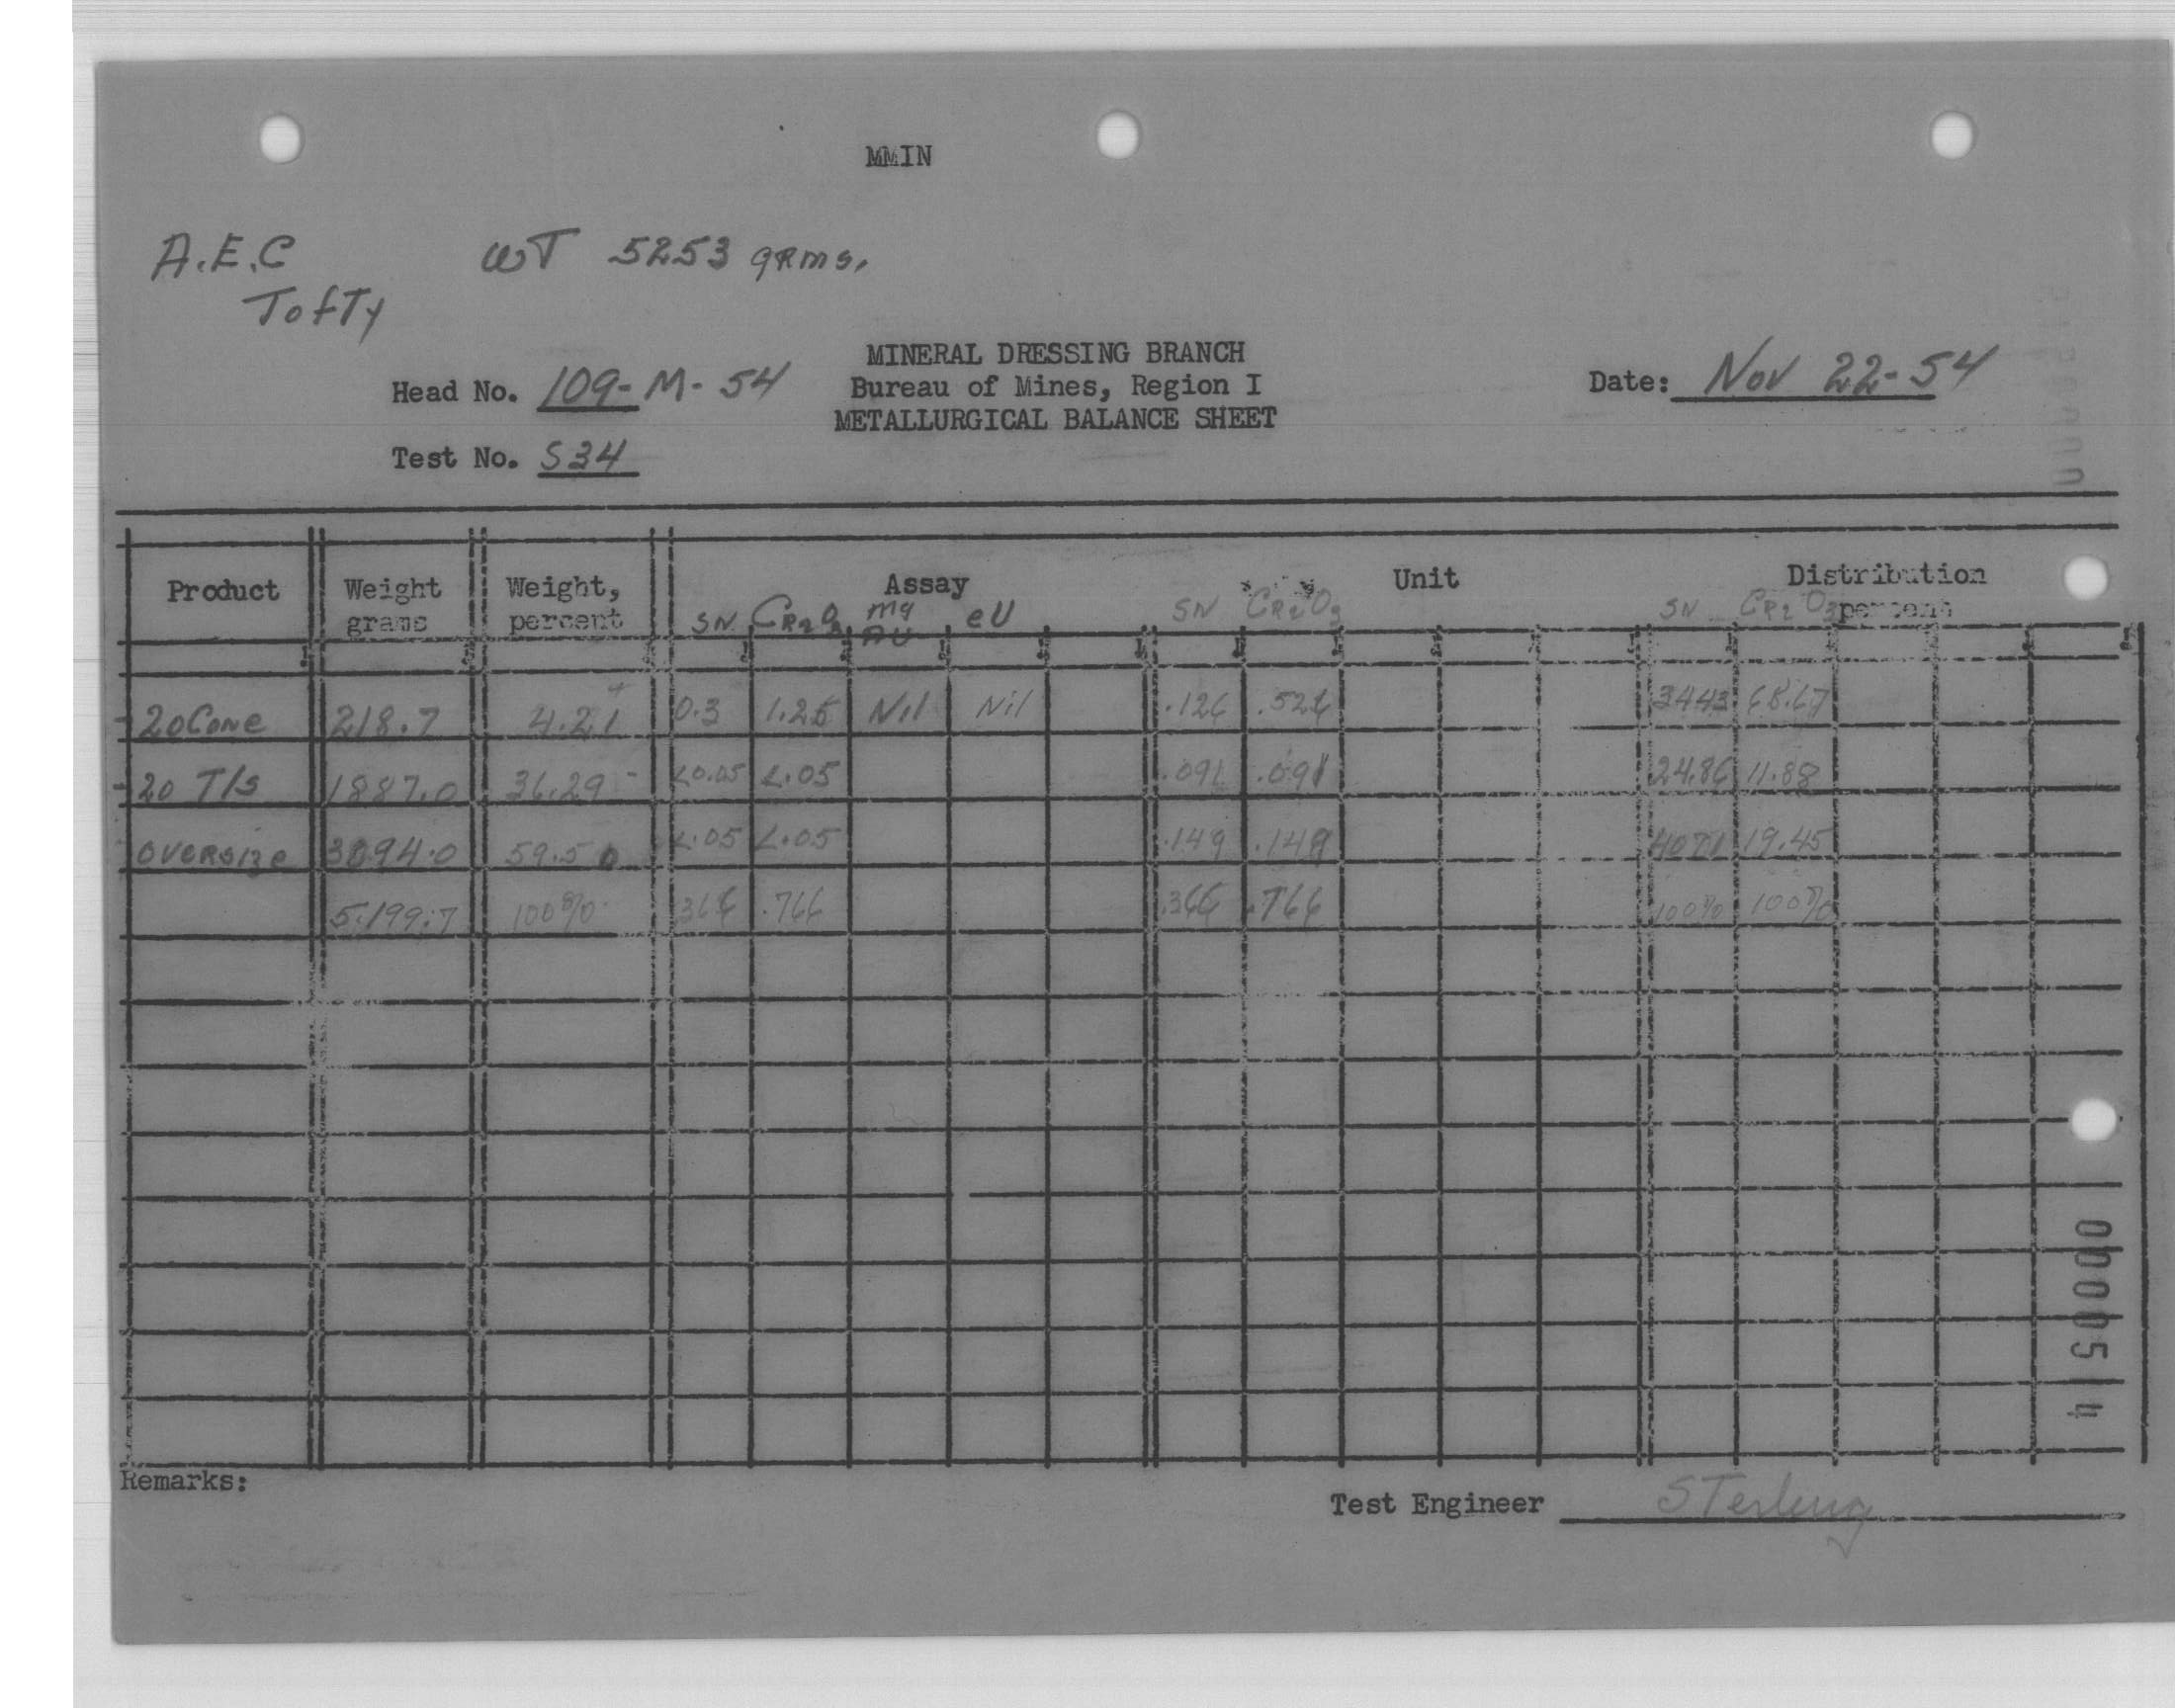 MMIN
A.E.C WT 5253 grms.
Tofty
MINERAL DRESSING BRANCH
Head No. 109-M-54 Bureau of Mines, Region I Date: Nov 22-54
METALLURGICAL BALANCE SHEET
Test No. S34
Product Weight grams Weight, percent Assay Unit Distribution percent
SN CR2O3 mg AU eU SN CR2O3 SN CR2O3
-20 Conc 218.7 4.21 0.3 1.25 Nil Nil .126 .526 34.43 68.67
-20 T/S 1887.0 36.29 <0.05 <.05 .091 .091 24.86 11.88
oversize 3094.0 59.50 <.05 <.05 .149 .149 40.71 19.45
5199.7 100% .366 .766 .366 .766 100% 100%
Remarks:
Test Engineer Sterling
0000514